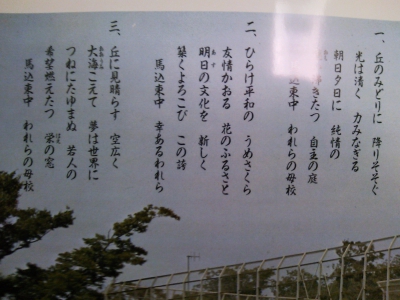 一、丘のみどりに 降りそそぐ
光は清く 力みなぎる
朝日夕日に 純情の
きたつ 自主の庭
込東中 われらの母校
二、ひらけ平和の うめさくら
友情かおる 花のふるさと
明日の文化を 新しく
築くよろこび この誇
馬込東中 幸あるわれら
三、丘に見晴らす 空広く
大海こえて 夢は世界に
つねにたゆまぬ 若人の
希望燃えたつ 栄の窓
馬込東中 われらの母校